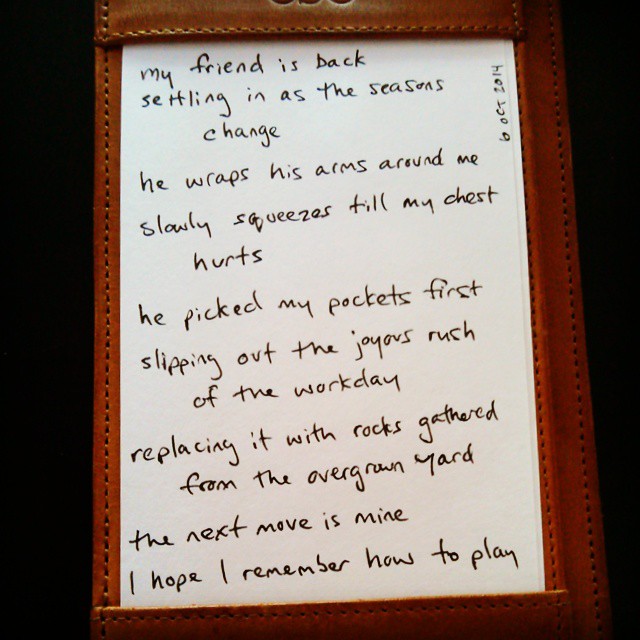 my friend is back
settling in as the seasons
change
he wraps his arms around me
slowly squeezes till my chest
hurts
he picked my pockets first
slipping out the joyous rush
of the workday
replacing it with rocks gathered
from the overgrown yard
the next move is mine
I hope I remember how to play
6 OCT 2014